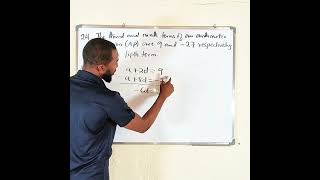 24 The third and ninth terms of an arithmetic
(AP) are 9 and -27 respectively
fifth term.
a+2d = 9
a+8d =
-6d =